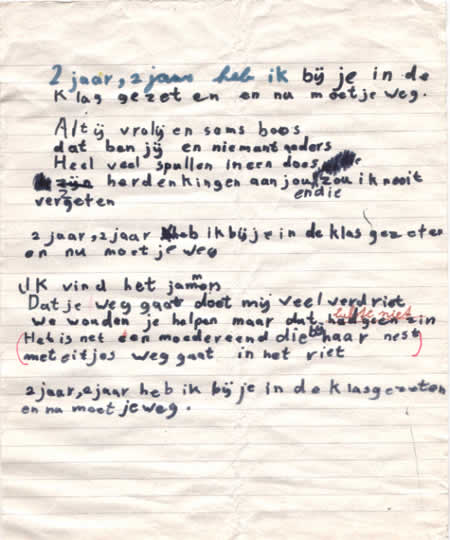 2 jaar, 2 jaar heb ik bij je in de
klas gezeten en nu moet je weg.
Altij vrolij en soms boos
dat ben jij en niemant anders
Heel veel spullen in een doos
zijn herdenkingen aan jou, zou ik nooit
endie
vergeten
2 jaar, 2 jaar heb ik bij je in de klas gezeten
en nu moet je weg
IK vind het jammer
Dat je weg gaat doet mij veel verdriet
We wouden je helpen maar dat had geen zin
lukte niet
Het is net een moedereend die bij haar nest
met eitjes weg gaat in het riet
2 jaar, 2 jaar heb ik bij je in de klas gezeten
en nu moet je weg.